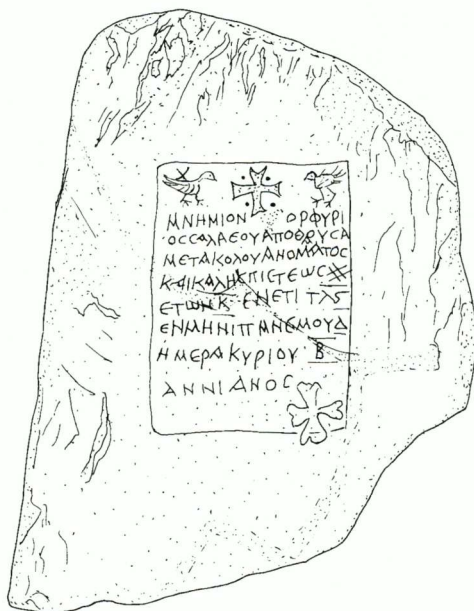 ΜΝΗΜΙΟΝ ΟΡΦΥΡΙ
ΟϹϹΑΛΑΕΟΥΑΠΟΘΡΥϹΑ
ΜΕΤΑΚΟΛΟΥΑΝΟΜΑΤΟϹ
ΚΑΛΗΚΠΙϹΤΕωϹ
ΕΤωΝΚ ΕΝΕΤΙ ΤΛϚ
ΕΝΜΗΝΙΠΑΝΕΜΟΥΔ
ΗΜΕΡΑΚΥΡΙΟΥ Β
ΑΝΝΙΑΝΟϹ